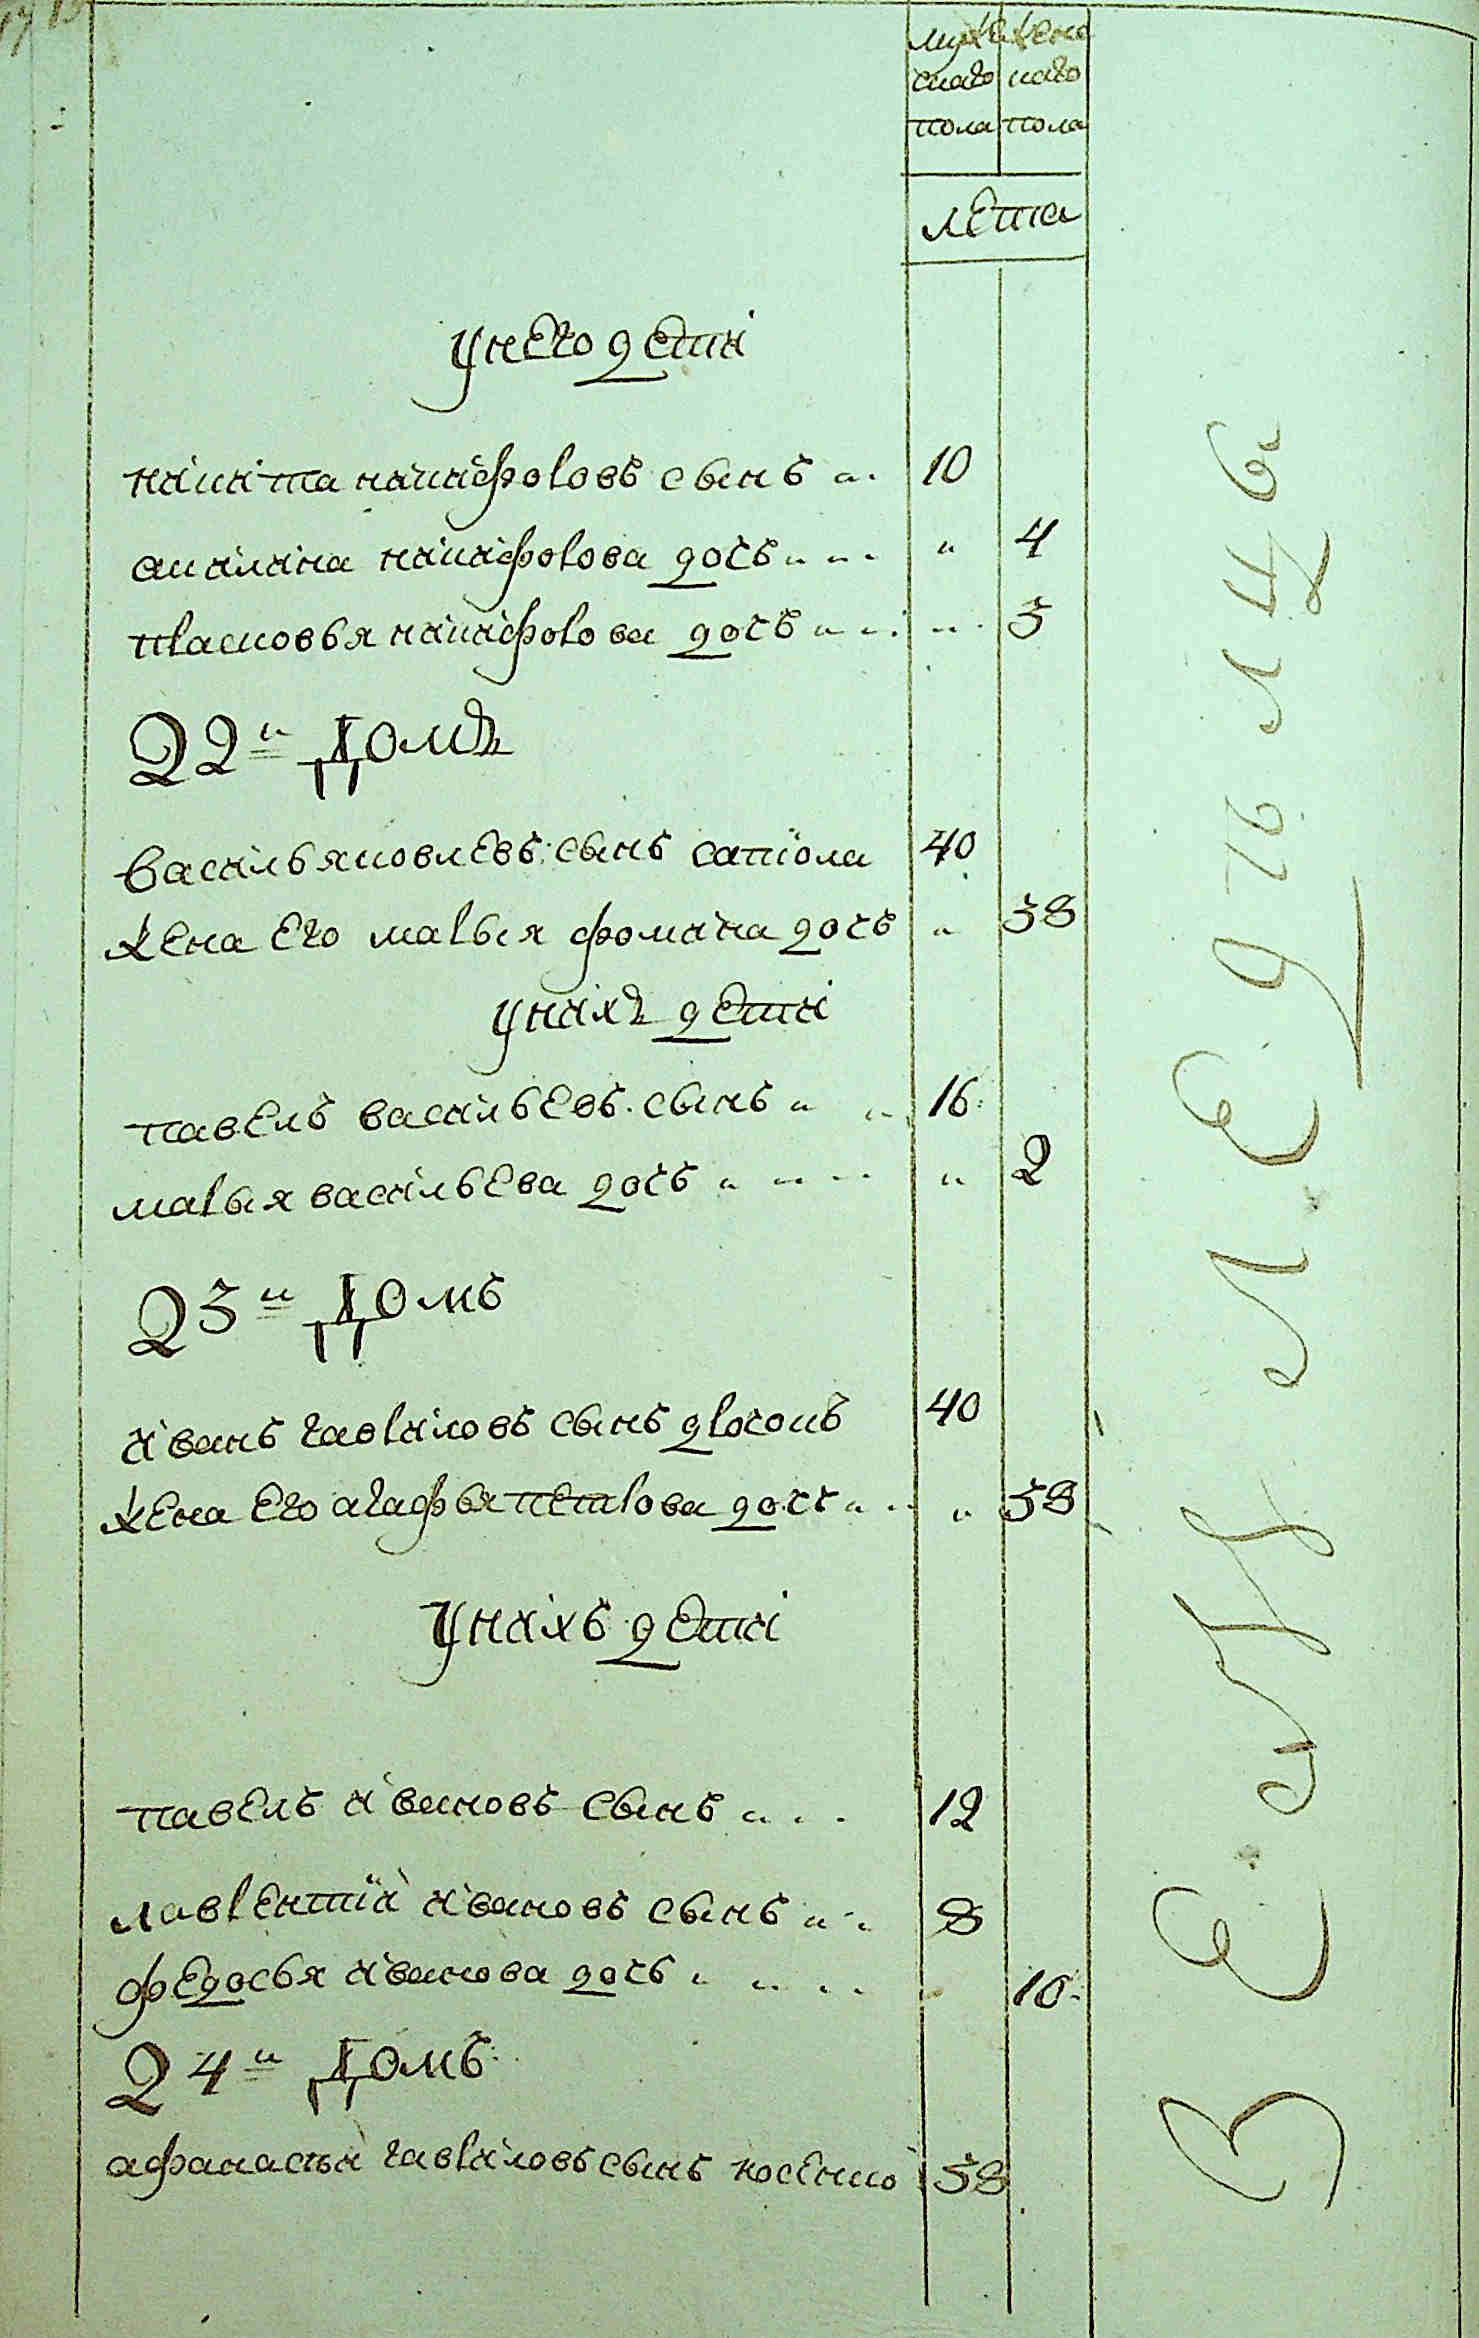 муже жене
скаго скаго
пола пола
лета
У него дети
никита никифоровъ сынъ 10
акилина никифорова дочь 4
прасковья никифорова дочь 3
22й домъ
василь яковлевъ сынъ сапiола 40
жена его марья фомина дочь 38
У нихъ дети
павелъ васильевъ сынъ 16
марья васильева дочь 2
23й домъ
иванъ гавриловъ сынъ 40
жена его агафья петрова дочь 38
У нихъ дети
павелъ ивановъ сынъ 12
лаврентiй ивановъ сынъ 8
федосья иванова дочь 10
24й домъ
афанасьи гавриловъ сынъ косенко 38